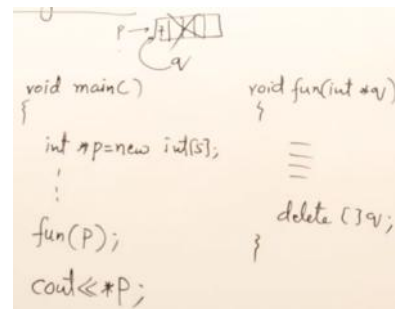 P
q
void main()
{
int *p=new int[5];
fun(P);
cout<<*P;
void fun(int *q)
{
delete []q;
}